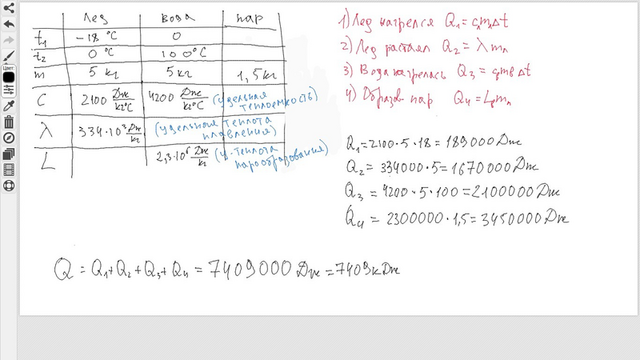 Лед вода пар
t₁ -18 °C 0
t₂ 0 °C 100°C
m 5 кг 5 кг 1,5 кг
C 2100 Дж/кг°C 4200 Дж/кг°C (удельная теплоемкость)
λ 334·10³ Дж/кг (удельная теплота плавления)
L 2,3·10⁶ Дж/кг (у. теплота парообразования)
1) Лед нагрелся Q₁ = cлmлΔt
2) Лед растаял Q₂ = λ mл
3) Вода нагрелась Q₃ = cвmвΔt
4) Образов пар Q4 = L mп
Q₁ = 2100·5·18 = 189000 Дж
Q₂ = 334000·5 = 1670000 Дж
Q₃ = 4200·5·100 = 2100000 Дж
Q4 = 2300000·1,5 = 3450000 Дж
Q = Q₁ + Q₂ + Q₃ + Q4 = 7409000 Дж = 7409 кДж